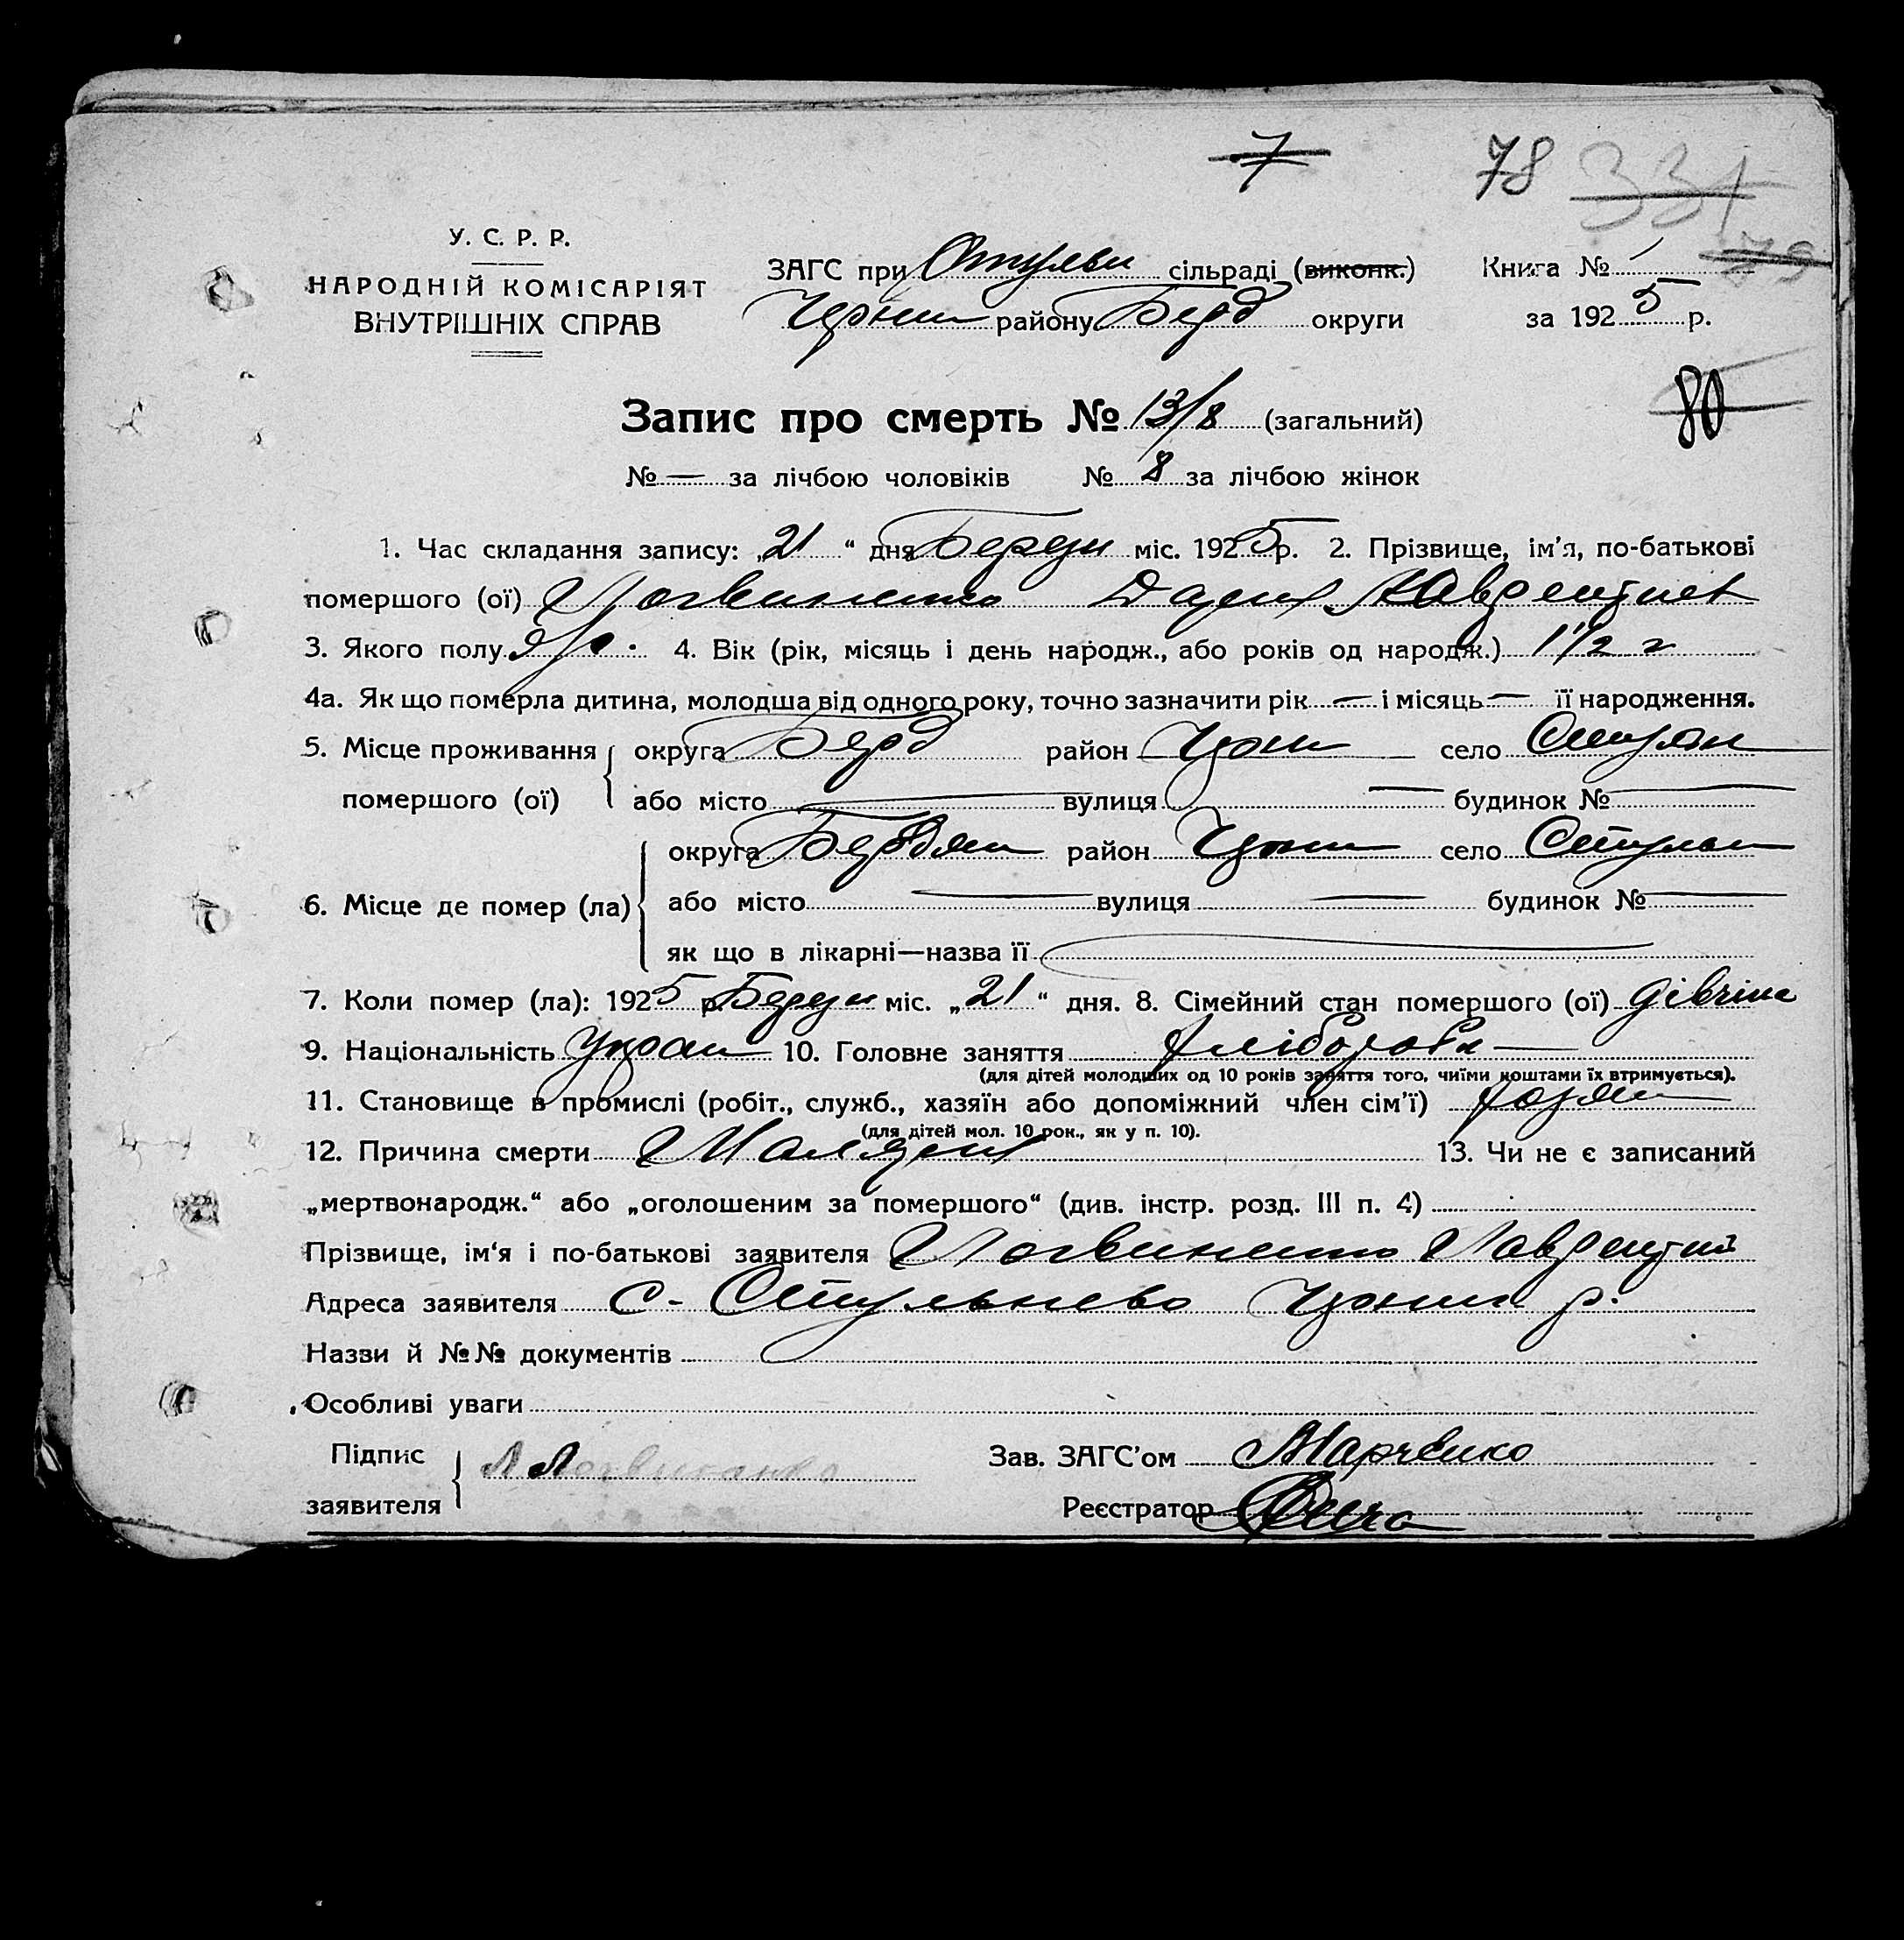 7 78 331
79
У. С. Р. Р.
НАРОДНІЙ КОМІСАРІЯТ
ВНУТРІШНІХ СПРАВ
ЗАГС при сільраді (виконк.) Книга № 1
району Берд округи за 1925 р.
80
Запис про смерть № 13/8 (загальний)
№ — за лічбою чоловіків № 8 за лічбою жінок
1. Час складання запису: „21“ дня Березн міс. 1925 р. 2. Прізвище, ім'я, по-батькові
помершого (ої) Логвиненко
3. Якого полу 4. Вік (рік, місяць і день народж., або років од народж.) 1 1/2 г
4а. Як що померла дитина, молодша від одного року, точно зазначити рік — і місяць — її народження.
5. Місце проживання округа Берд район село
помершого (ої) або місто — вулиця — будинок № —
округа Бердян район село
6. Місце де помер (ла) або місто — вулиця — будинок № —
як що в лікарні—назва її
7. Коли помер (ла): 1925 р. Березн міс. „21“ дня. 8. Сімейний стан помершого (ої) дівчина
9. Національність Украи 10. Головне заняття
(для дітей молодших од 10 років заняття того, чиїми коштами їх втримується).
11. Становище в промислі (робіт., служб., хазяїн або допоміжний член сім'ї)
(для дітей мол. 10 рок., як у п. 10).
12. Причина смерти 13. Чи не є записаний
„мертвонародж.“ або „оголошеним за помершого“ (див. інстр. розд. III п. 4)
Прізвище, ім'я і по-батькові заявителя Логвиненко Лаврентий
Адреса заявителя с. Стульнево р.
Назви й №№ документів
Особливі уваги
Підпис Л Логвиненко Зав. ЗАГС'ом Марченко
заявителя Реєстратор